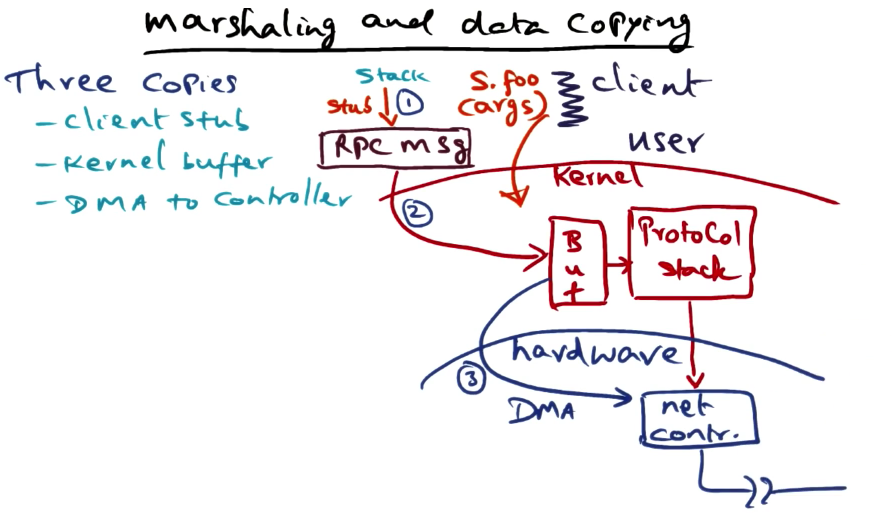 marshaling and data copying
Three Copies
- Client Stub
- Kernel buffer
- DMA to Controller
Stack
Stub ①
RPC msg
S.foo
(args)
client
user
Kernel
②
Buf
Protocol
stack
hardware
③
DMA
net
contr.